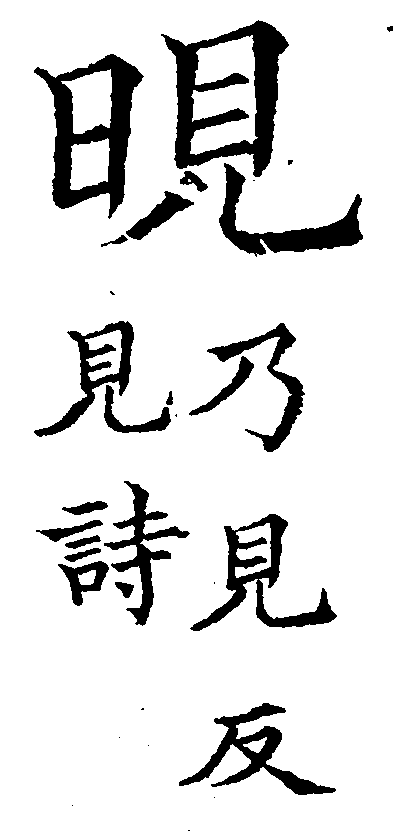 晛
乃見反
見詩